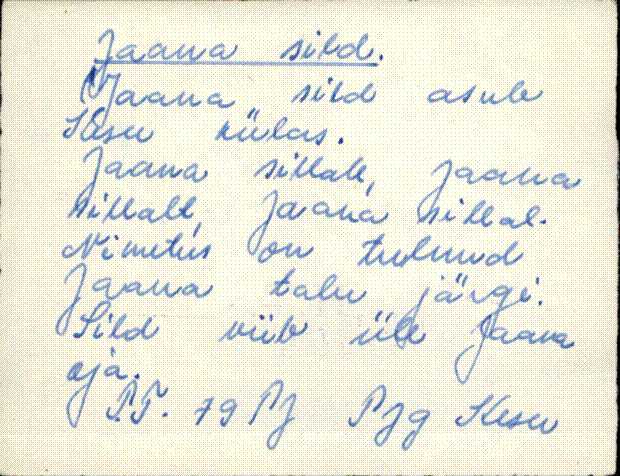 Jaana sild.
Jaana sild asub
Kesu külas.
Jaana sillale, Jaana
sillalt, Jaana sillal.
Nimetus on tulnud
Jaana talu järgi.
Sild viib üle Jaana
oja.
P.T. 79 Pj Pjg Kesu